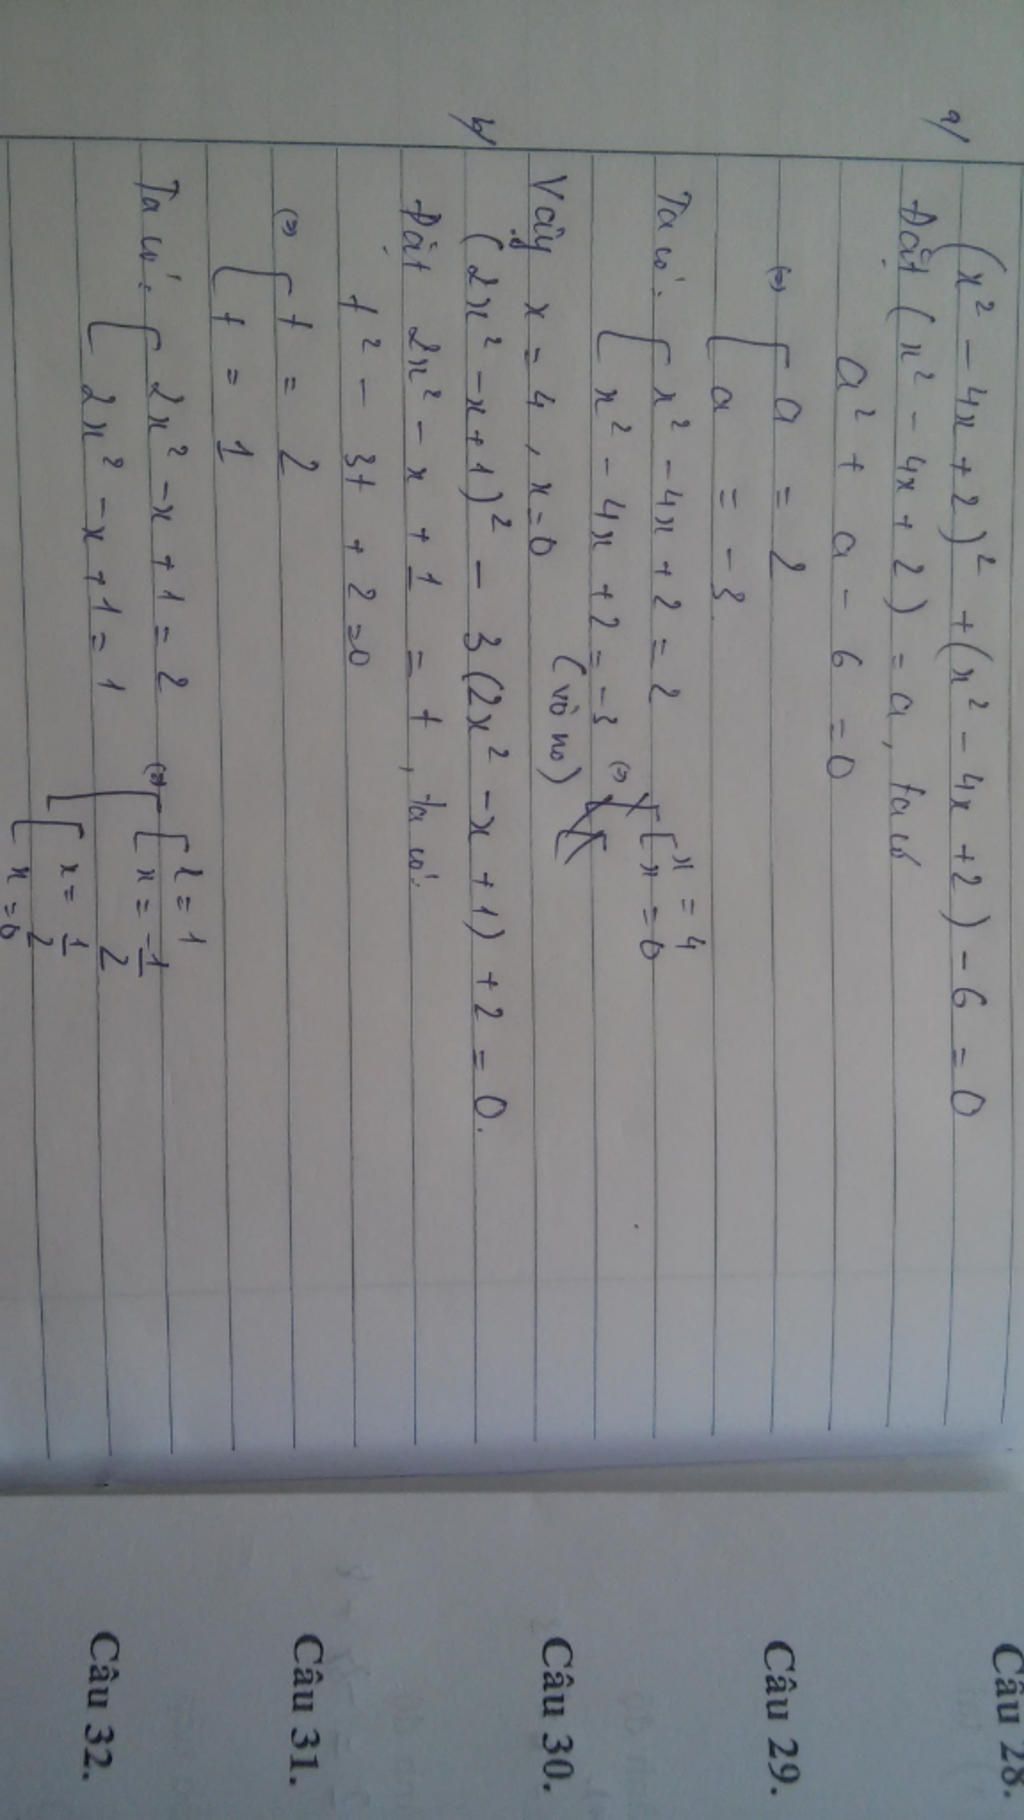 a/ (x² - 4x + 2)² + (x² - 4x + 2) - 6 = 0
Đặt (x² - 4x + 2) = a, ta có
a² + a - 6 = 0
(=) [ a = 2
[ a = -3
Ta có: [ x² - 4x + 2 = 2 [ x = 4
[ x² - 4x + 2 = -3 (=) [ x = 0
(vô no)
Vậy x = 4, x = 0
b/ (2x² - x + 1)² - 3(2x² - x + 1) + 2 = 0.
Đặt 2x² - x + 1 = t, ta có:
t² - 3t + 2 = 0
(=) [ t = 2
[ t = 1
Ta có: [ 2x² - x + 1 = 2 (=) [ x = 1
[ x = -1/2
[ 2x² - x + 1 = 1 [ x = 1/2
[ x = 0
Câu 28.
Câu 29.
Câu 30.
Câu 31.
Câu 32.